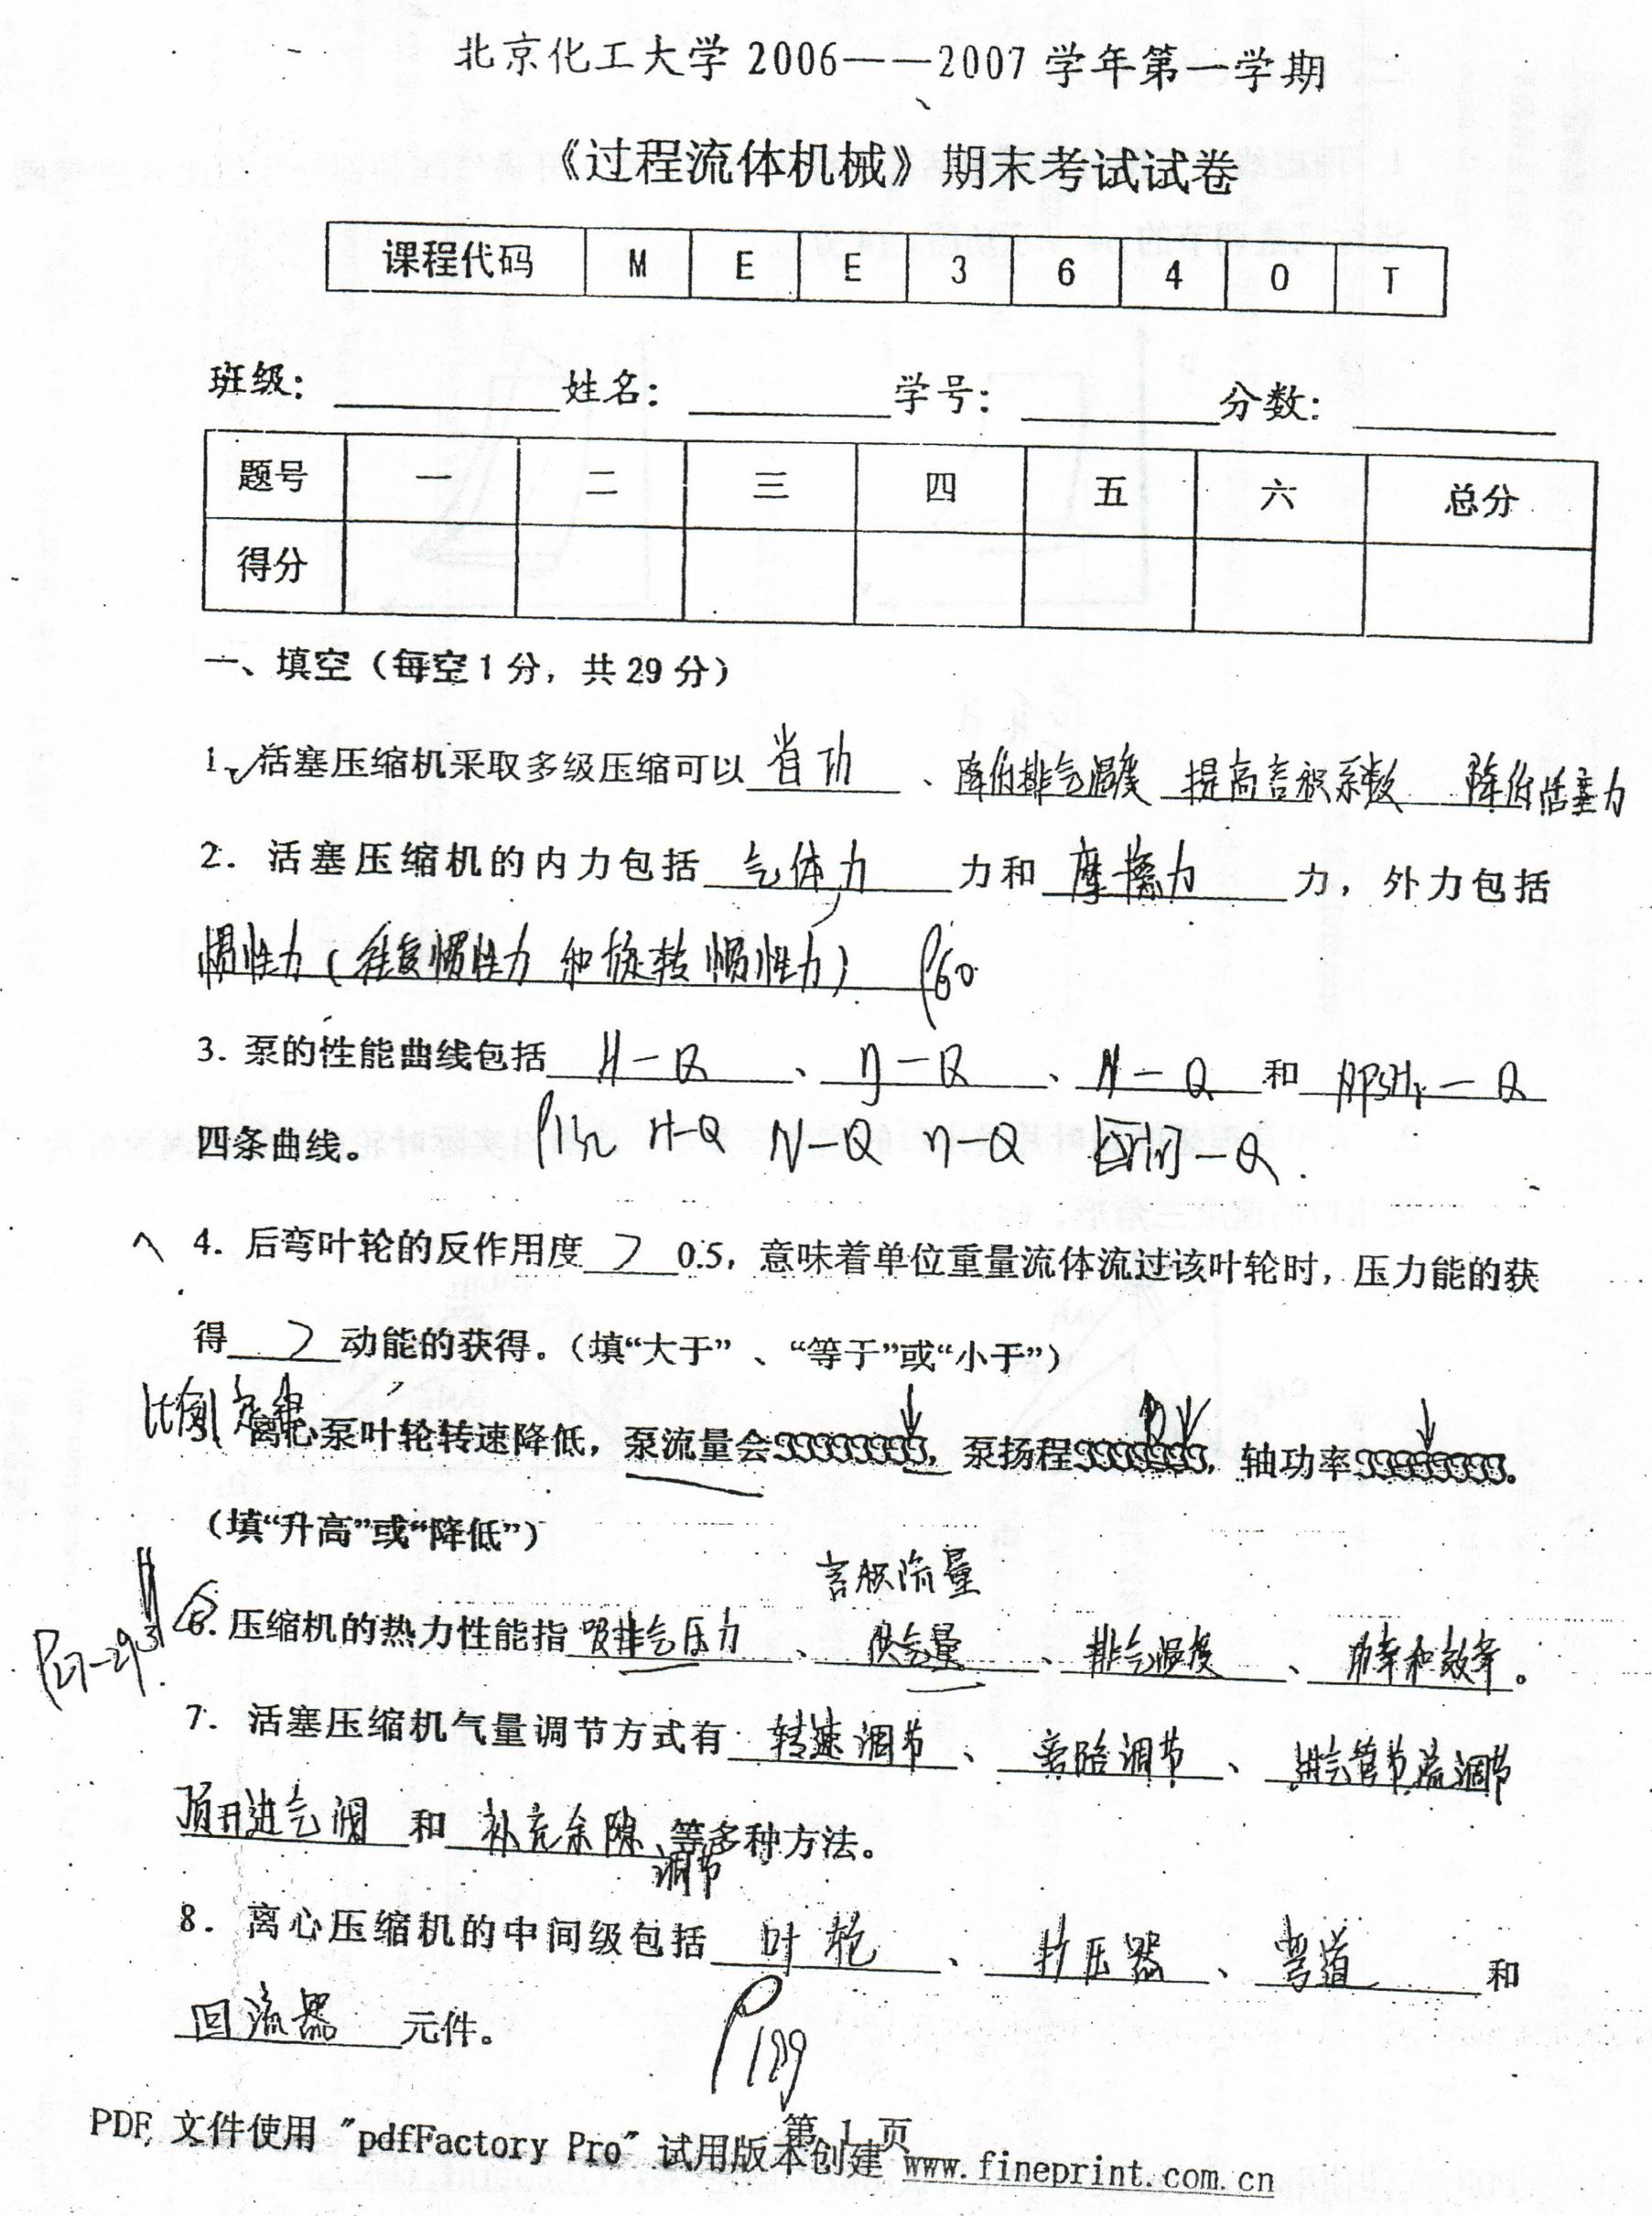 北京化工大学 2006——2007 学年第一学期
《过程流体机械》期末考试试卷
课程代码 M E E 3 6 4 0 T
班级: 姓名: 学号: 分数:
题号 一 二 三 四 五 六 总分
得分
一、填空（每空1分，共29分）
1、活塞压缩机采取多级压缩可以 省功 、降低排气温度 提高容积系数 降低活塞力
2. 活塞压缩机的内力包括 气体力 力和 摩擦力 力，外力包括
惯性力（往复惯性力 和 旋转惯性力） P60
3. 泵的性能曲线包括 H-Q 、η-Q 、N-Q 和 NPSHr-Q
四条曲线。 H-Q N-Q η-Q
4. 后弯叶轮的反作用度 > 0.5，意味着单位重量流体流过该叶轮时，压力能的获
得 > 动能的获得。（填“大于”、“等于”或“小于”）
比例定律
离心泵叶轮转速降低，泵流量会 ↓，泵扬程 ↓，轴功率 ↓。
（填“升高”或“降低”）
容积流量
6. 压缩机的热力性能指 吸排气压力 、供气量 、排气温度 、功率和效率。
P27-29
7. 活塞压缩机气量调节方式有 转速调节 、旁路调节 、进气管节流调节
顶开进气阀 和 补充余隙 等多种方法。
调节
8. 离心压缩机的中间级包括 叶轮 、扩压器 、弯道 和
回流器 元件。
P199
第 1 页
PDF 文件使用 "pdfFactory Pro" 试用版本创建 www.fineprint.com.cn